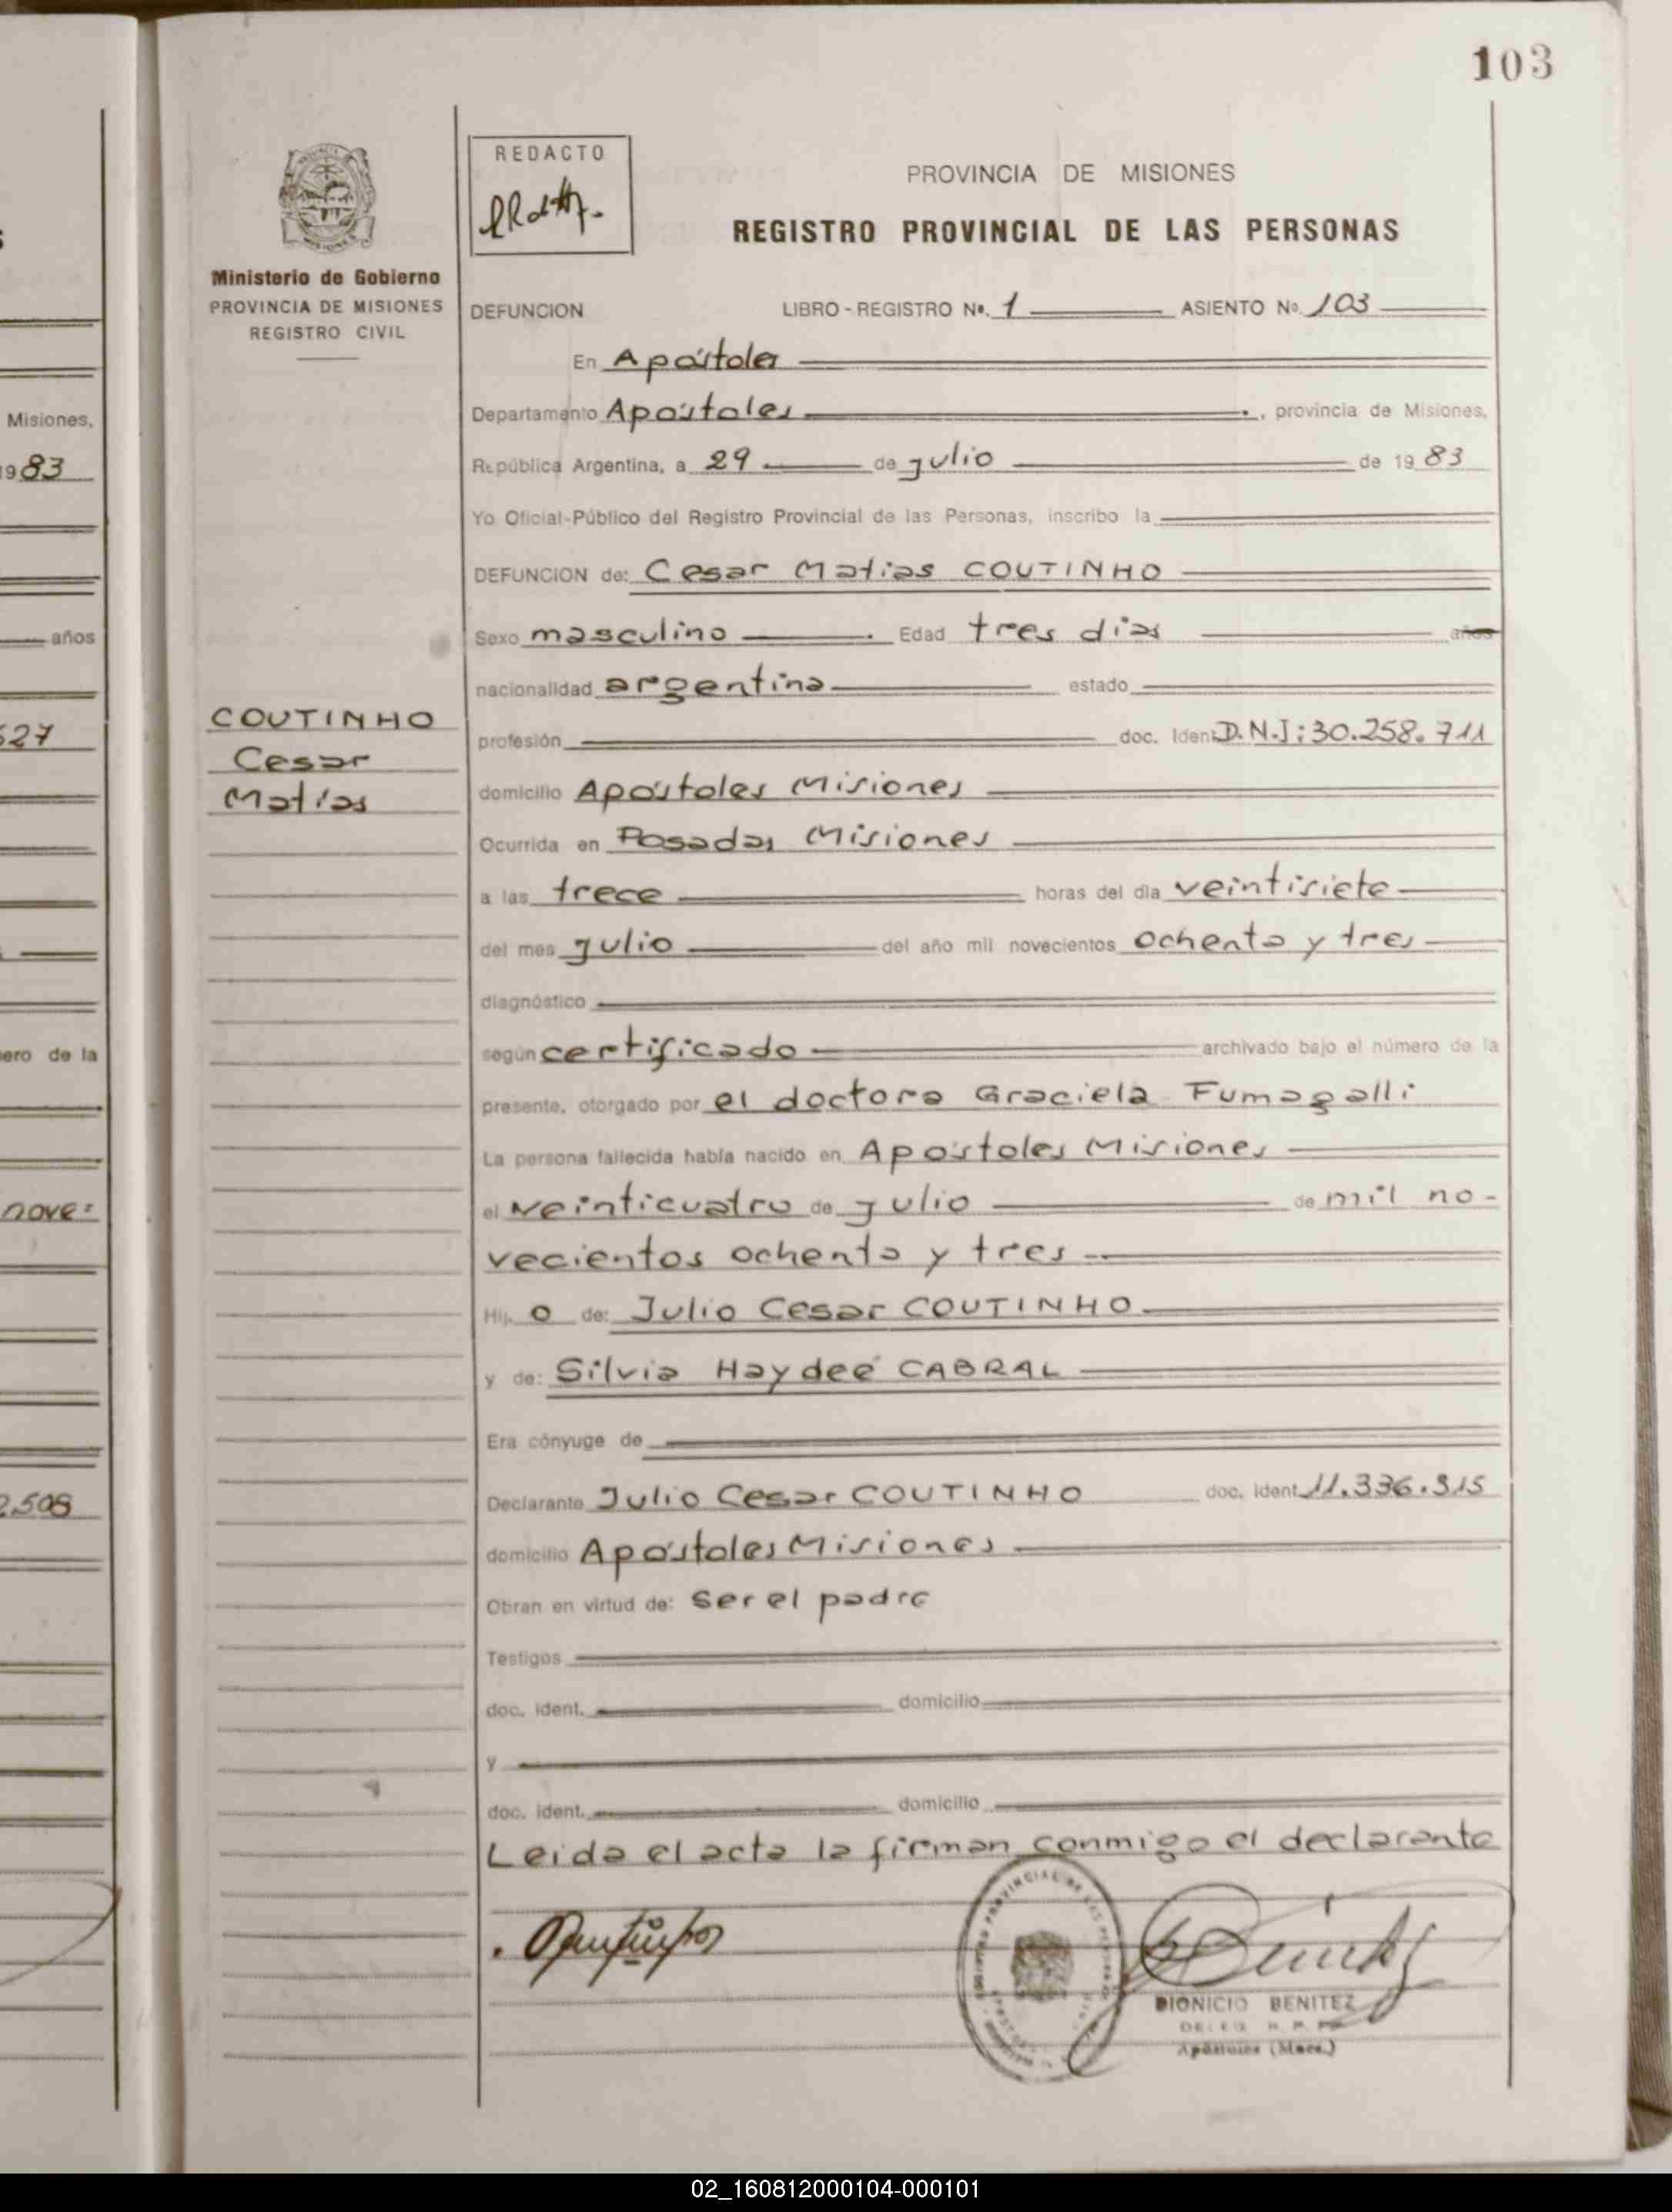 103
REDACTO
PROVINCIA DE MISIONES
REGISTRO PROVINCIAL DE LAS PERSONAS
Ministerio de Gobierno
PROVINCIA DE MISIONES
REGISTRO CIVIL
DEFUNCION LIBRO - REGISTRO Nº. 1 ASIENTO Nº 103
En Apóstoles
Departamento Apóstoles, provincia de Misiones,
República Argentina, a 29 de julio de 1983
Yo Oficial-Público del Registro Provincial de las Personas, inscribo la
DEFUNCION de: Cesar Matias COUTINHO
Sexo masculino Edad tres dias años
nacionalidad argentina estado
COUTINHO
Cesar
Matias
profesión doc. Ident D.N.I: 30.258.711
domicilio Apóstoles Misiones
Ocurrida en Posadas Misiones
a las trece horas del día veintisiete
del mes julio del año mil novecientos ochenta y tres
diagnóstico
según certificado archivado bajo el número de la
presente, otorgado por el doctora Graciela Fumagalli
La persona fallecida había nacido en Apóstoles Misiones
el veinticuatro de julio de mil no-
vecientos ochenta y tres
Hij o de: Julio Cesar COUTINHO
y de: Silvia Haydeé CABRAL
Era cónyuge de
Declarante Julio Cesar COUTINHO doc. ident. 11.336.315
domicilio Apóstoles Misiones
Obran en virtud de: ser el padre
Testigos
doc. ident. domicilio
y
doc. ident. domicilio
Leida el acta la firman conmigo el declarante
DIONICIO BENITEZ
Apóstoles (Mnes.)
Misiones,
1983
años
627
ero de la
nove:
2.508
02_160812000104-000101